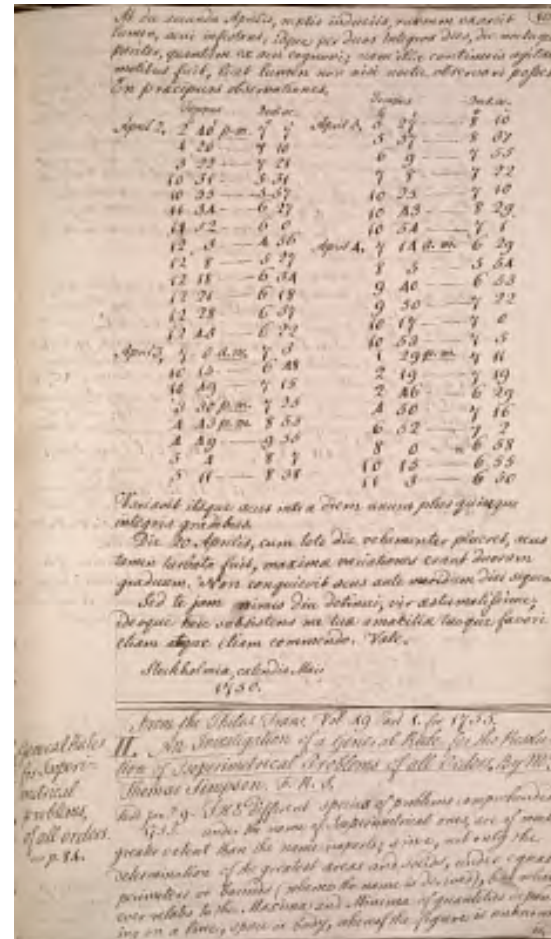 At die secunda Aprilis, noctis induciis, rursum exarsit
lumen, acui infestans, idque per duos integros dies, die noctuque
pariter, quantum ex acu cognovi; nam illa continuis agitata
motibus fuit, licet lumen non nisi noctu observari posset.
En praecipuas observationes.
Tempus Declin. Tempus Declin.
April 2, 2 40 p.m. 7 7 April 3, 5 27 8 10
4 20 7 10 5 37 8 37
5 22 7 21 6 9 7 55
10 31 5 31 7 8 7 22
10 33 5 57 10 23 7 10
11 34 6 27 10 43 8 29
11 52 6 0 10 54 7 1
12 3 4 56 April 4, 7 14 a.m. 6 29
12 8 5 27 8 5 5 54
12 18 6 54 9 40 6 53
12 21 6 18 9 50 7 22
12 28 6 57 10 17 7 0
12 43 6 22 10 53 7 5
April 3, 7 0 a.m. 7 5 1 29 p.m. 7 11
10 15 6 48 2 19 7 19
10 49 7 15 2 46 6 29
3 30 p.m. 7 35 4 50 7 16
4 43 p.m. 8 53 6 52 7 2
4 49 9 55 8 0 6 58
5 4 8 7 10 15 6 55
5 11 8 38 11 3 6 50
Variavit itaque acus intra diem unum plus quinque
integris gradibus.
Die 20 Aprilis, cum tota die vehementer plueret, acus
tamen turbata fuit, maxima variationes erant duorum
graduum. Non conquievit acus ante meridiem diei sequen
Sed te jam nimis diu detinui, vir aestumatissime;
desque hic subsistens me tua amabilia tuoque favori
etiam atque etiam commendo. Vale.
Stockholmia, calendis Maii
1750.
From the Philos. Trans. Vol 49 Part 1. for 1755.
II. An Investigation of a General Rule for the Resolu-
tion of Isoperimetrical Problems of all Orders. By Mr.
Thomas Simpson, F. R. S.
General Rules
for Isoperi-
metrical
problems,
of all orders.
p. 84.
1755. THE different species of problems comprehended
under the name of Isoperimetrical ones, are of much
greater extent than the name imports; since, not only the
determination of the greatest areas and solids, under equal
perimeters or bounds (whence the name is derived), but what
ever relates to the Maxima and Minima of quantities depend
ing on a line, space or body, whereof the figure is unknown